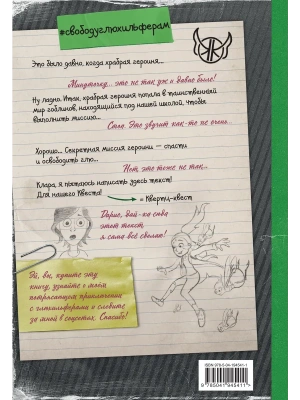 #свободуглюкильферам
Это было давно, когда храбрая героиня...
Минуточку... это не так уж и давно было!
Ну ладно. Итак, храбрая героиня попала в таинственный
мир гоблинов, находящийся под нашей школой, чтобы
выполнить миссию...
Стоп. Это звучит как-то не очень...
Хорошо... Секретная миссия героини — спасти
и освободить глю...
Нет, это тоже не так...
Клара, я пытаюсь написать здесь текст!
Для нашего Квеста!
= Кверти-квест
Дарио, дай-ка сюда
этот текст
я сама всё сделаю!
Эй, вы, купите эту
книгу, узнайте о моём
потрясающем приключении
с глюкильферами и следите
за мной в соцсетях. Спасибо!
ISBN 978-5-04-194541-1
9785041945411